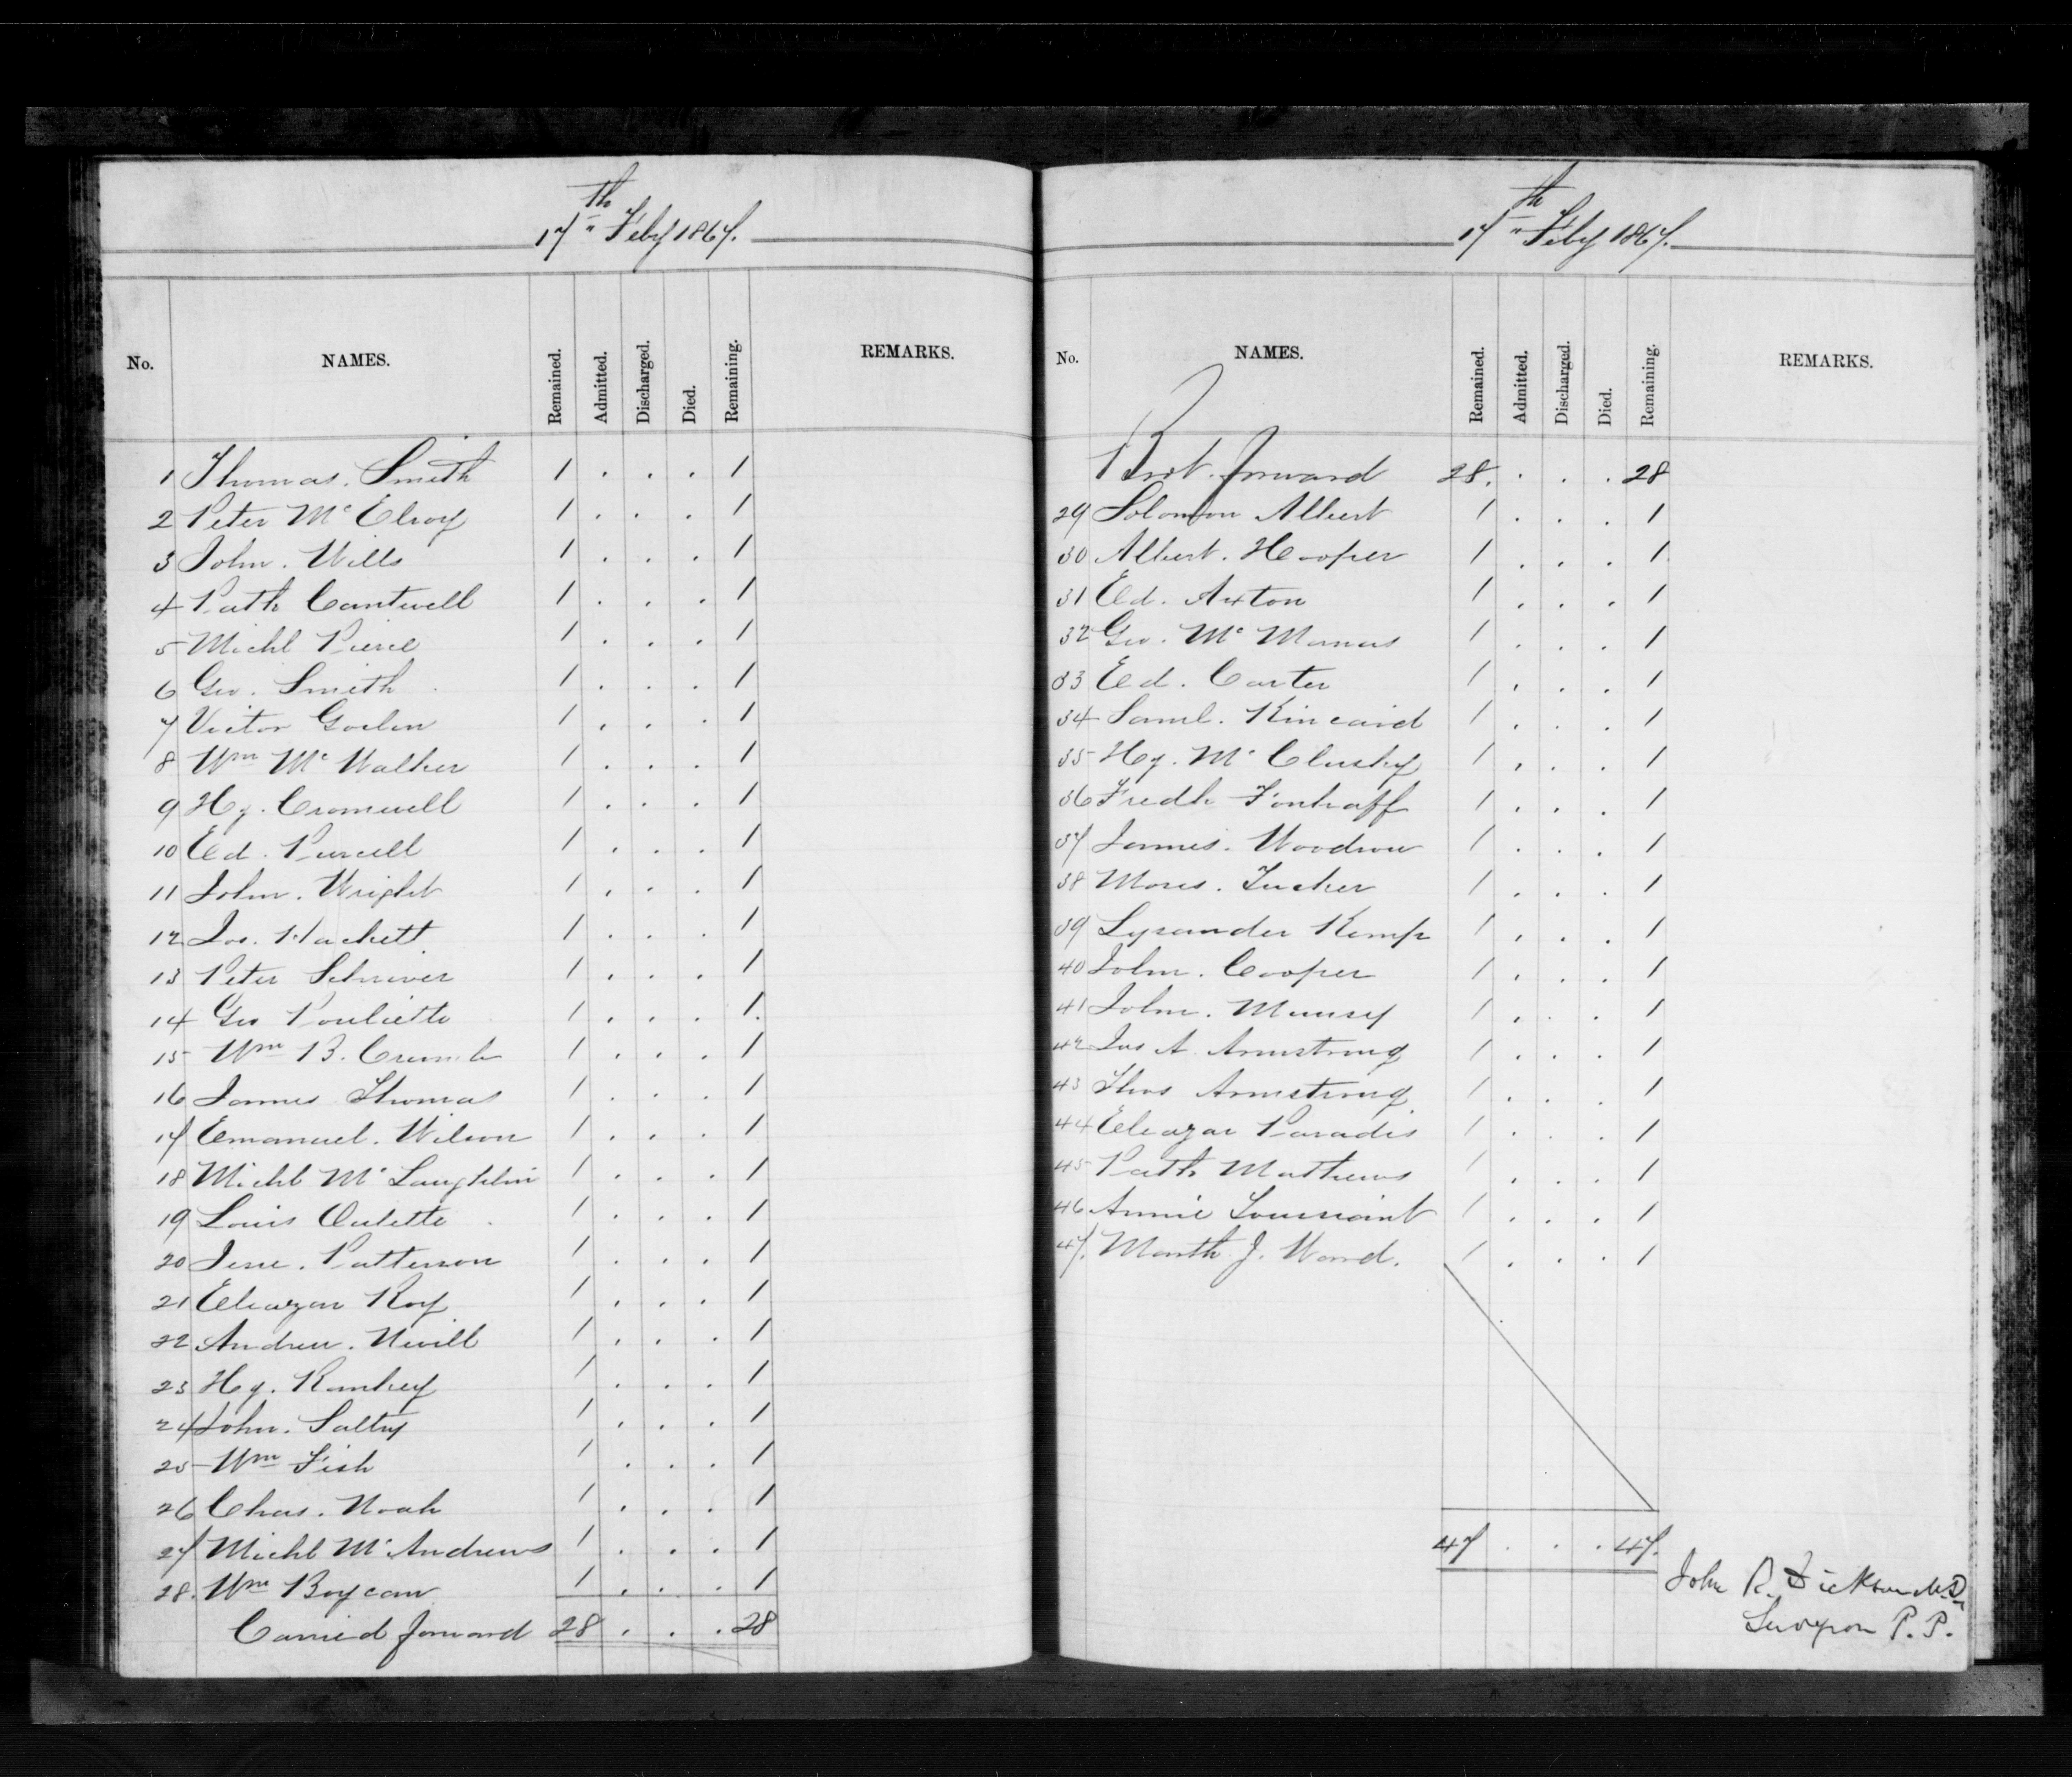 17th Feby 1867.
No. NAMES. Remained. Admitted. Discharged. Died. Remaining. REMARKS.
1 Thomas. Smith 1 . . . 1
2 Peter Mc Elroy 1 . . . 1
3 John. Wills 1 . . . 1
4 Patk Cantwell 1 . . . 1
5 Michl Pierce 1 . . . 1
6 Geo. Smith 1 . . . 1
7 Victor Goslin 1 . . . 1
8 Wm Mc Walker 1 . . . 1
9 Hy. Cromwell 1 . . . 1
10 Ed. Purcell 1 . . . 1
11 John. Wright 1 . . . 1
12 Jos. Hackett 1 . . . 1
13 Peter Schriver 1 . . . 1
14 Geo Pouliette 1 . . . 1
15 Wm B. Crumb 1 . . . 1
16 James Thomas 1 . . . 1
17 Emanuel. Wilson 1 . . . 1
18 Michl Mc Laughlin 1 . . . 1
19 Louis Oulette 1 . . . 1
20 Jesse. Patterson 1 . . . 1
21 Eleazar Roy 1 . . . 1
22 Andrew. Nevill 1 . . . 1
23 Hy. Rankey 1 . . . 1
24 John. Saltry 1 . . . 1
25 Wm Fish 1 . . . 1
26 Chas. Noah 1 . . . 1
27 Michl Mc Andrews 1 . . . 1
28. Wm Boycan 1 . . . 1
Carried forward 28 . . . 28
17th Feby 1867.
No. NAMES. Remained. Admitted. Discharged. Died. Remaining. REMARKS.
Brot. forward 28. . . . 28
29 Solomon Albert 1 . . . 1
30 Albert. Hooper 1 . . . 1
31 Ed. Axton 1 . . . 1
32 Geo. Mc Manus 1 . . . 1
33 Ed. Carter 1 . . . 1
34 Saml. Kincaid 1 . . . 1
35 Hy. Mc Clusky 1 . . . 1
36 Fredk Fonhaff 1 . . . 1
37 James. Woodrow 1 . . . 1
38 Moses. Tucker 1 . . . 1
39 Lysander Kemp 1 . . . 1
40 John. Cooper 1 . . . 1
41 John. Munsey 1 . . . 1
42 Jas A. Armstrong 1 . . . 1
43 Thos Armstrong 1 . . . 1
44 Eleazar Paradis 1 . . . 1
45 Patk Mathews 1 . . . 1
46 Annie Toussaint 1 . . . 1
47. Marth J. Ward. 1 . . . 1
47 . . . 47.
John R. Dickson M.D.
Surgeon P. P.